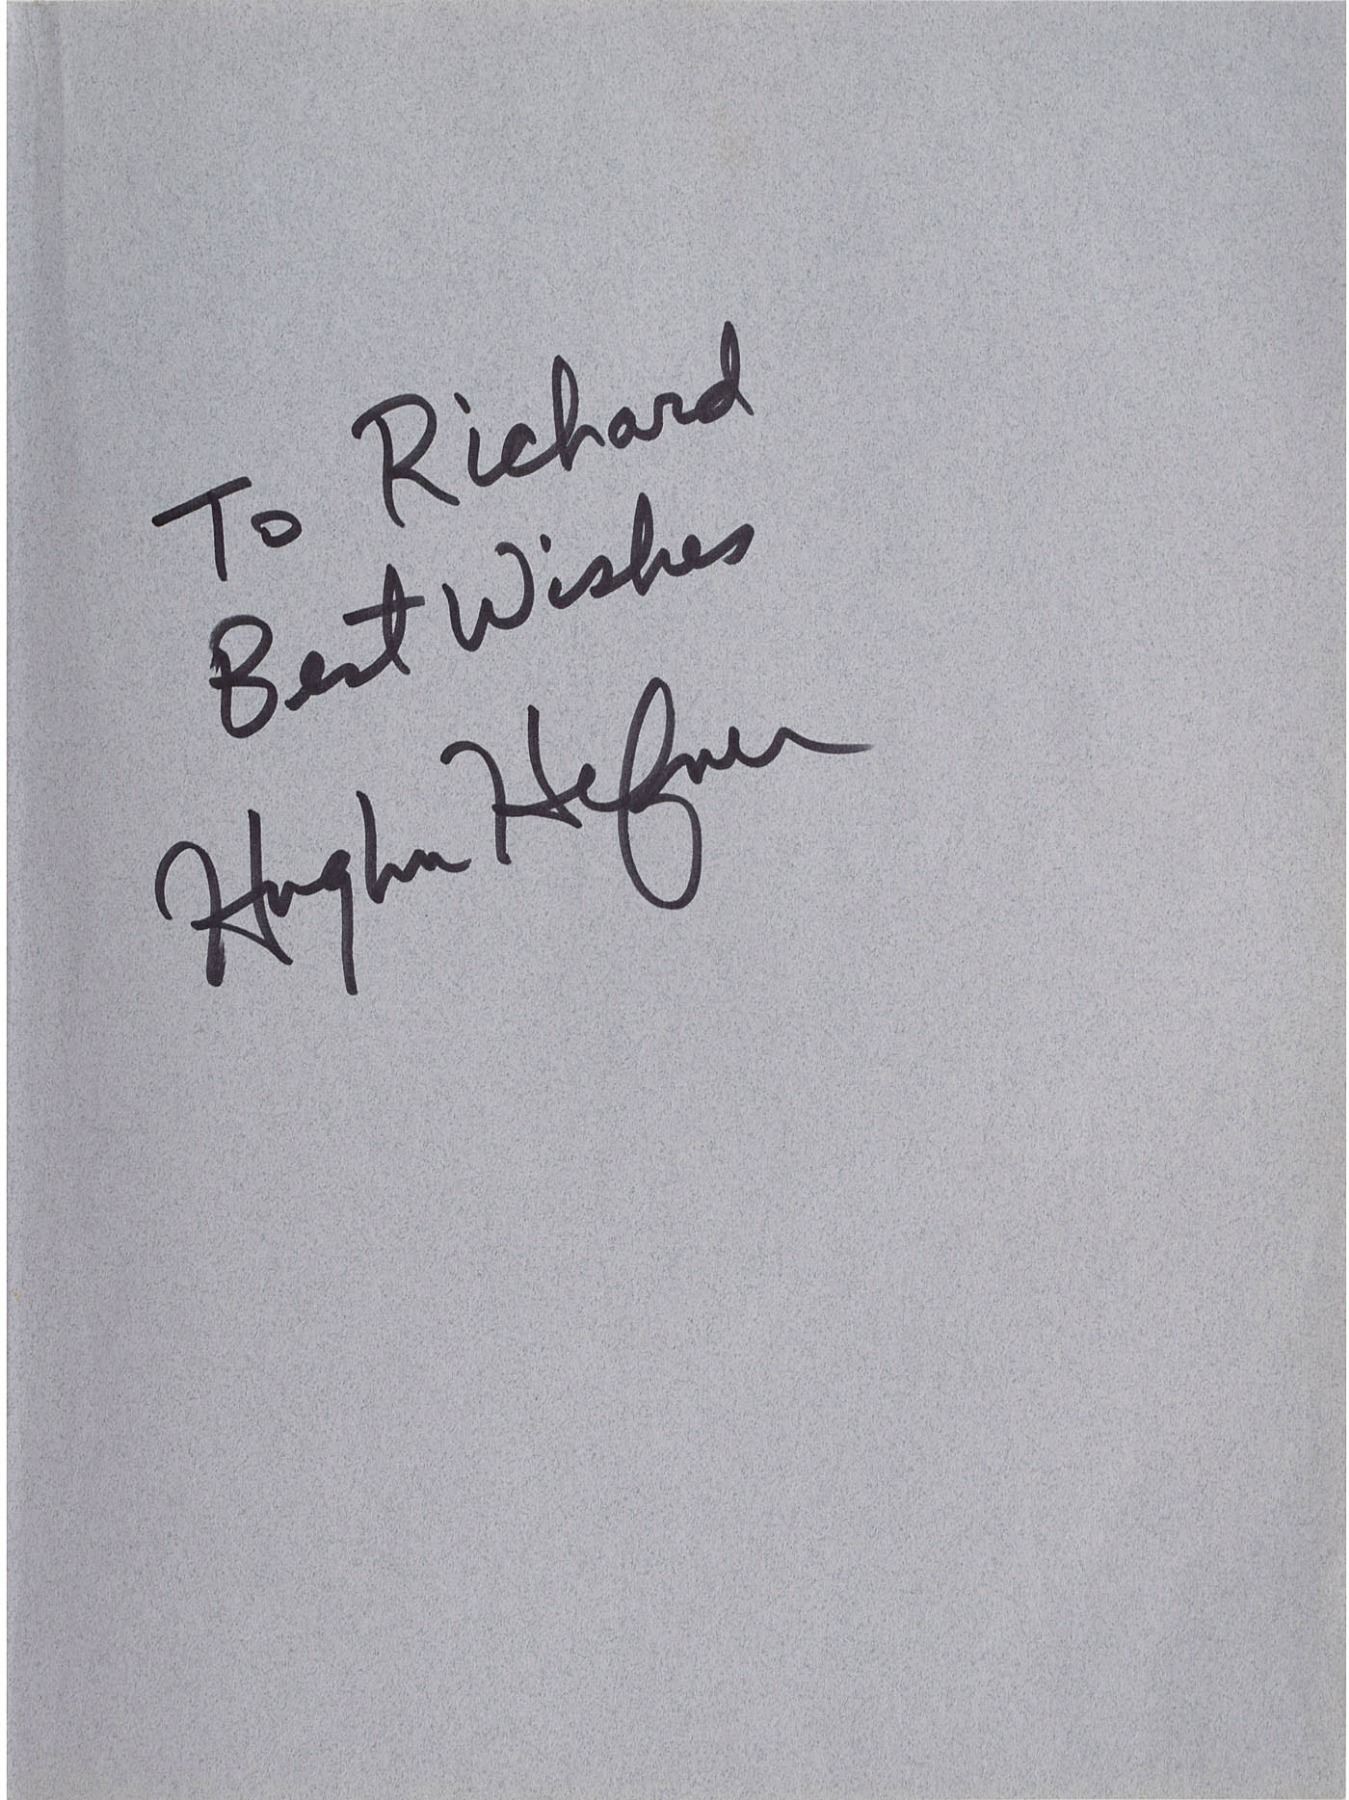 To Richard
Best Wishes
Hugh M Hefner